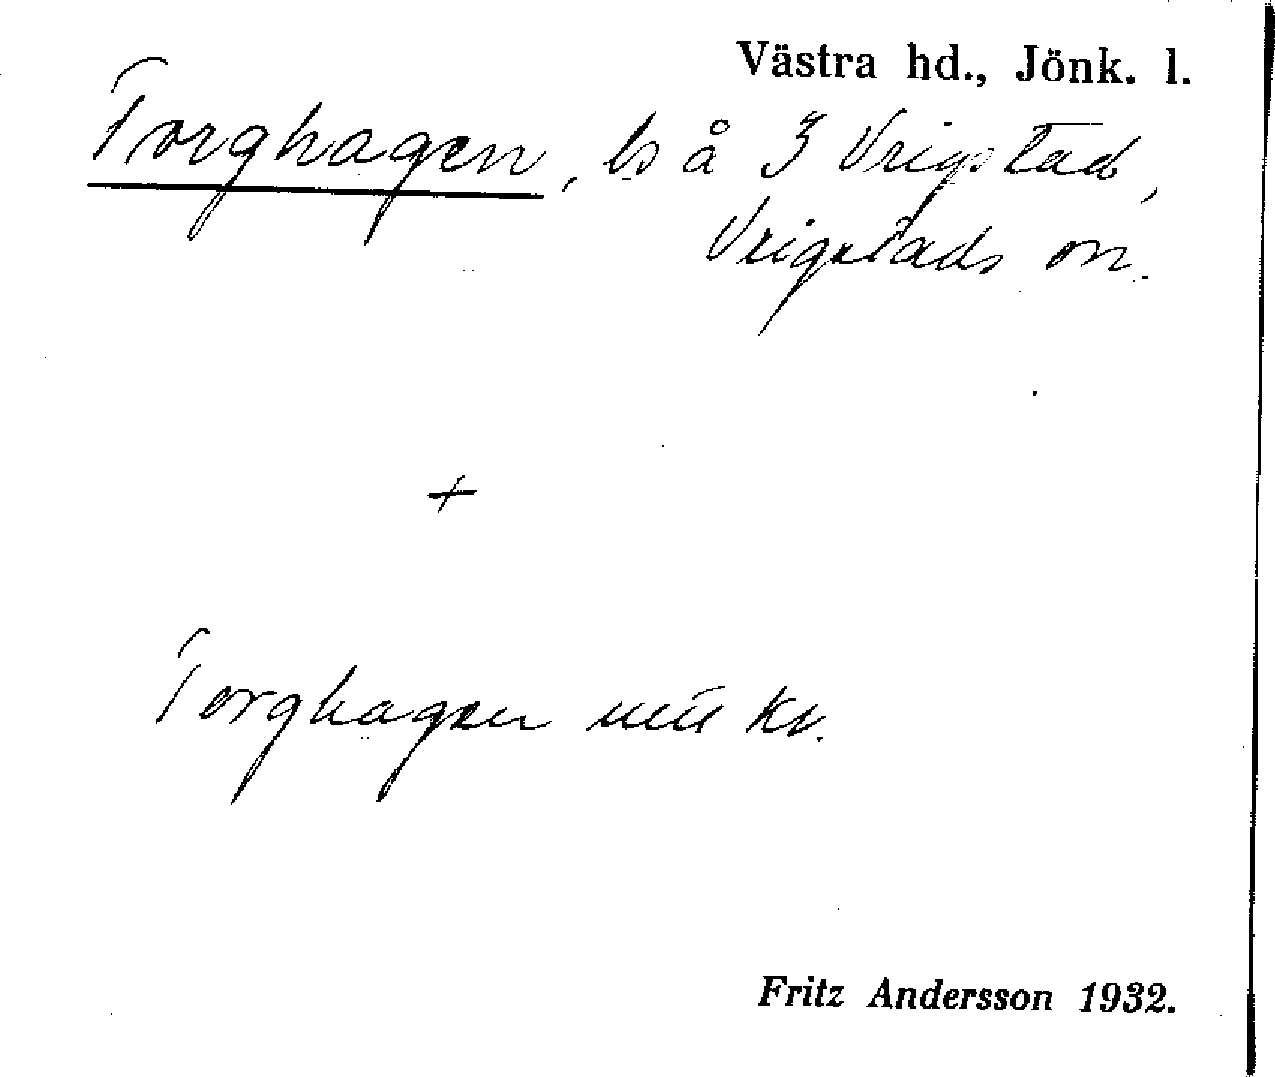 Västra hd., Jönk. l.
Torghagen, ls å 3 Vrigstad,
Vrigstads sn.
+
Torghagen utö kv.
Fritz Andersson 1932.